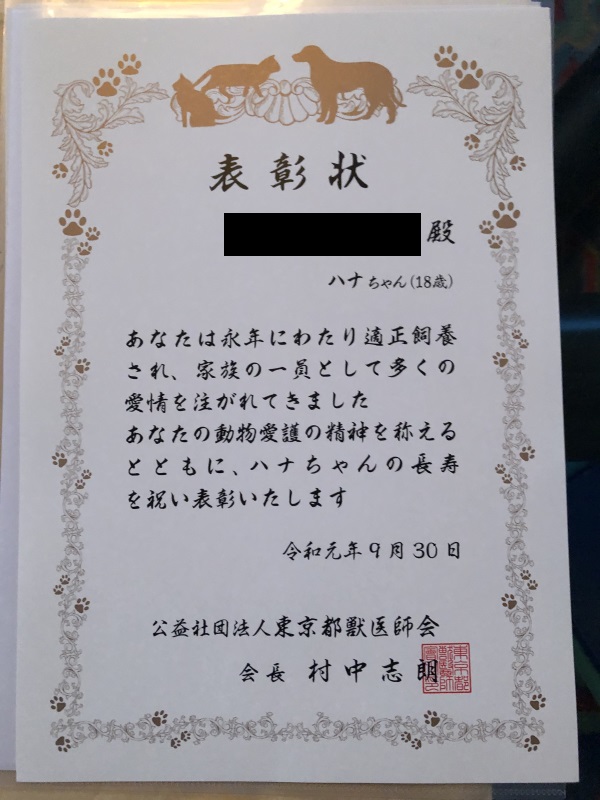 表彰状
殿
ハナちゃん(18歳)
あなたは永年にわたり適正飼養
され、家族の一員として多くの
愛情を注がれてきました
あなたの動物愛護の精神を称える
とともに、ハナちゃんの長寿
を祝い表彰いたします
令和元年9月30日
公益社団法人東京都獣医師会
会長 村中志朗